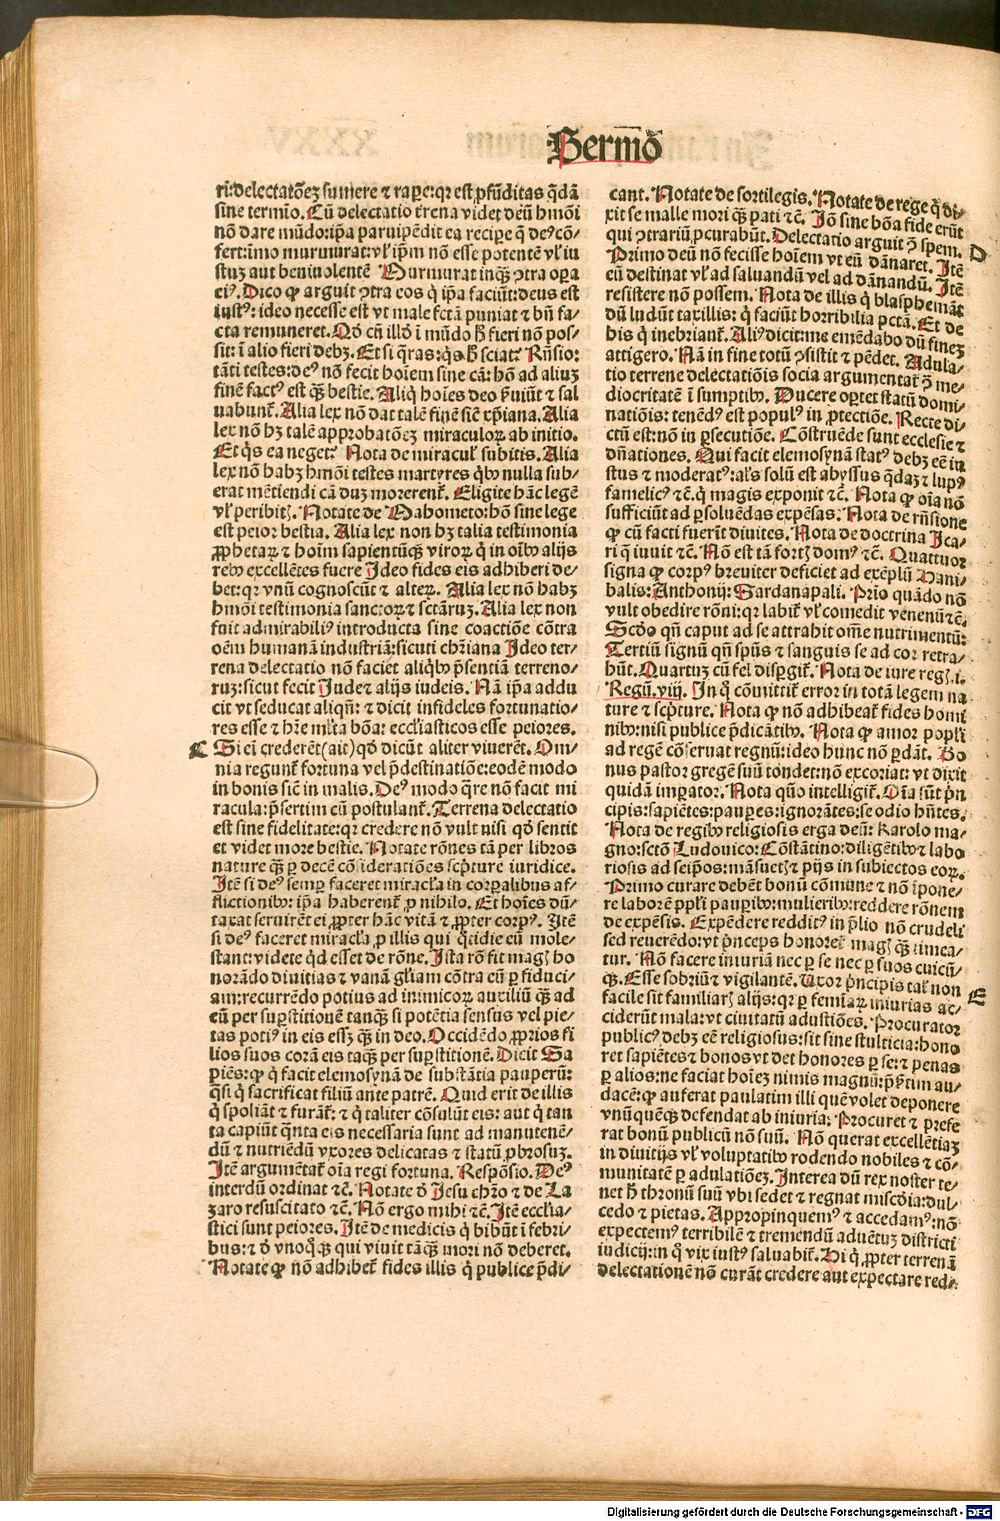 Sermō
ri: delectatōeꝫ sumere ⁊ rapere: qr est ꝓfūditas q̄dā
sine termīo. Cū delectatio trena videt deū hmōi
nō dare mūdo: ip̄a paruipēdit ea recipe q̄ deꝰ cō⸗
fert: īmo murmurat: vl̓ ip̄m nō esse potentē vl̓ iu
stuꝫ aut beniuolentē Murmurat inqꝫ ꝯtra oꝑa
eiꝰ. Dico ꝙ arguit ꝯtra eos q̇ ip̄a faciūt: deus est
iustꝰ: ideo necesse est vt male fctā puniat ⁊ bn̄ fa⸗
cta remuneret. Qď cū illď ī mūdo h̄ fieri nō pos⸗
sit: ī alio fieri debꝫ. Et si q̄ras: q̇s h̄ sciat? Rn̄sio:
tāti testes: deꝰ nō fecit hoīem sine cā: hō ad aliuꝫ
finē factꝰ est qꝫ bestie. Aliq̇ hoīes deo ẜuiūt ⁊ sal
uabunt̄. Alia lex nō dat talē finē sic̄ xp̄iana. Alia
lex nō hꝫ talē approbatōeꝫ miraculoꝝ ab initio.
Et q̇s ea neget? Nota de miracul̓ subitis. Alia
lex nō habꝫ hmōi testes martyres q̇bꝰ nulla sub⸗
erat mētiendi cā duꝫ morerent̄. Eligite hāc legē
vl̓ peribitꝭ. Notate de Mahometo: hō sine lege
est peior bestia. Alia lex non hꝫ talia testimonia
ꝓphetaꝝ ⁊ hoīm sapientūqꝫ viroꝝ q̇ in oībꝰ alijs
rebꝰ excellētes fuere Ideo fides eis adhiberi de⸗
bet: qr vnū cognoscūt ⁊ alteꝝ. Alia lex nō habꝫ
hmōi testimonia sanctoꝝ ⁊ sctāruꝫ. Alia lex non
fuit admirabiliꝰ introducta sine coactiōe cōtra
oēm humanā industriā: sicuti chr̄iana Ideo ter⸗
rena delectatio nō faciet aliq̇bꝰ p̄sentiā terreno⸗
ruꝫ: sicut fecit Iudeꝭ alijs iudeis. Nā ip̄a addu
cit vt seducat aliqn̄: ⁊ dicit infideles fortunatio⸗
res esse ⁊ hr̄e ml̓ta bōa: eccl̓iasticos esse peiores.
C Si ei crederēt (ait) qď dicūt aliter viuerēt. Om⸗
nia regunt̄ fortuna vel p̄destinatiōe: eodē modo
in bonis sic̄ in malis. Deꝰ modo q̄re nō facit mi
racula: p̄sertim cū postulant̄. Terrena delectatio
est sine fidelitate: qr credere nō vult nisi qď sentit
et videt more bestie. Notate rōnes tā per libros
nature qꝫ ꝑ decē cōsideratiōes scp̄ture iuridice.
Itē si deꝰ semꝑ faceret miracl̓a in corꝑalibus af⸗
flictionibꝰ: ip̄a haberent̄ ꝓ nihilo. Et hoīes dū⸗
taxat seruirēt ei ꝓpter hāc vitā ⁊ ꝓpter corpꝰ. Itē
si deꝰ faceret miracl̓a ꝓ illis qui q̄tidie eū mole⸗
stant: videte q̇d esset de rōne. Ista rō fit magꝭ ho
norādo diuitias ⁊ vanā gl̓iam cōtra eū ꝑ fiduci⸗
am: recurrēdo potius ad inimicoꝝ auxiliū qꝫ ad
eū per suꝑstitionē tanqꝫ si potētia sensus vel pie⸗
tas potiꝰ in eis essꝫ qꝫ in deo. Occidēdo ꝓprios fi
lios suos corā eis taqꝫ per suꝑstitionē. Dicit Sa
piēs: ꝙ q̇ facit elemosynā de substātia pauperū:
q̄si q̇ sacrificat filiū ante patrē. Quid erit de illis
q̇ spoliāt ⁊ furāt̄: ⁊ q̇ taliter cōsulūt eis: aut q̇ tan
ta capiūt q̄nta eis necessaria sunt ad manutenē⸗
dū ⁊ nutriēdū vxores delicatas ⁊ statū ꝓbrosuꝫ.
Itē argumētat̄ oīa regi fortuna. Respōsio. Deꝰ
interdū ordinat ⁊c̄. Notate ď Iesu chr̄o ⁊ de La
zaro resuscitato ⁊c̄. Nō ergo mihi ⁊c̄. Itē eccl̓ia⸗
stici sunt peiores. Itē de medicis q̇ bibūt ī febri⸗
bus: ⁊ ď vnoq̇qꝫ qui viuit tāqꝫ mori nō deberet.
Notate ꝙ nō adhibet̄ fides illis q̇ publice p̄di⸗
cant. Notate de sortilegis. Notate de rege q̇ di⸗
xit se malle mori qꝫ pati ⁊c̄. Iō sine bōa fide erūt
qui ꝯtrariū ꝓcurabūt. Delectatio arguit ꝯ̄ spem. D
Primo deū nō fecisse hoīem vt eū dānaret. Itē
eū destinat vl̓ ad saluandū vel ad dānandū. Itē
resistere nō possem. Nota de illis q̇ blasphemāt
dū ludūt taxillis: q̇ faciūt horribilia pctā. Et de
his q̇ inebriant̄. Aliꝰ dicit: me emēdabo dū fineꝫ
attigero. Nā in fine totū ꝯsistit ⁊ pēdet. Adula⸗
tio terrene delectatiōis socia argumentat̄ ꝯ̄ me⸗
diocritatē ī sumptibꝰ. Ducere oꝑtet statū domi⸗
natiōis: tenēdꝰ est populꝰ in ꝓtectiōe. Recte di⸗
ctū est: nō in ꝑsecutiōe. Cōstruēde sunt ecclesie ⁊
dn̄ationes. Qui facit elemosynā statꝰ debꝫ eē iu
stus ⁊ moderatꝰ: al̓s solū est abyssus q̄daꝫ ⁊ lupꝰ
famelicꝰ ⁊c̄. q̇ magis exponit ⁊c̄. Nota ꝙ oīa nō
sufficiūt ad ꝑsoluēdas expēsas. Nota de rn̄sione
ꝙ cū facti fuerīt diuites. Nota de doctrina Ica⸗
ri q̇ iuuit ⁊c̄. Nō est tā fortꝭ domꝰ ⁊c̄. Quattuor
signa ꝙ corpꝰ breuiter deficiet ad exēplū Hani⸗
balis: Anthonij: Sardanapali. Prīo quādo nō
vult obedire rōni: qr labit̄ vl̓ comedit venenū ⁊c̄.
Scďo qn̄ caput ad se attrahit om̄e nutrimentū:
Tertiū signū qn̄ spūs ⁊ sanguis se ad cor retra⸗
hūt. Quartuꝫ cū fel disꝑgit̄. Nota de iure regꝭ .i.
Regū. viij. In q̇ cōmittit̄ error in totā legem na
ture ⁊ scp̄ture. Nota ꝙ nō adhibeat̄ fides homi
nibꝰ: nisi publice p̄dicātibꝰ. Nota ꝙ amor popl̓i
ad regē cōseruat regnū: ideo hunc nō ꝑdāt. Bo
nus pastor gregē suū tondet: nō excoriat: vt dixit
quidā imꝑator. Nota qūo intelligit̄. Oīa sūt p̄n
cipis: sapiētes: pauꝑes: ignorātes: se odio hn̄tes.
Nota de regibꝰ religiosis erga deū: Karolo ma⸗
gno: sctō Ludouico: Cōstātino: diligētibꝰ ⁊ labo
riosis ad seip̄os: māsuetꝭ ⁊ pijs in subiectos eoꝝ.
Primo curare debēt bonū cōmune ⁊ nō īpone⸗
re laborē ppl̓i pauꝑibꝰ: mulieribꝰ: reddere rōnem
de expēsis. Expēdere redditꝰ in p̄lio nō crudeli
sed reuerēdo: vt p̄nceps honoret̄ magꝭ qꝫ timea⸗
tur. Nō facere iniuriā nec ꝑ se nec ꝑ suos cuicū⸗
qꝫ. Esse sobriū ⁊ vigilantē. Uxor p̄ncipis tal̓ non
facile sit familiarꝭ alijs: qr ꝑ femīaꝝ iniurias ac⸗ E
ciderūt mala: vt ciuitatū adustiōes. Procurator
publicꝰ debꝫ eē religiosus: sit sine stulticia: hono
ret sapiētes ⁊ bonos vt det honores ꝑ se: ⁊ penas
ꝑ alios: ne faciat hoīeꝫ nimis magnū: p̄ꝑtim au⸗
dacē: ꝙ auferat paulatim illi quē volet deponere
vnūquēqꝫ defendat ab iniuria: Procuret ⁊ p̄fe⸗
rat bonū publicū nō suū. Nō querat excellētiaꝫ
in diuitijs vl̓ voluptatibꝰ rodendo nobiles ⁊ cō⸗
munitatē ꝑ adulatiōeꝫ. Interea dū rex noster te⸗
net h̄ thronū suū vbi sedet ⁊ regnat misc̄dia: dul⸗
cedo ⁊ pietas. Appropinquemꝰ ⁊ accedamꝰ: nō
expectemꝰ terribilē ⁊ tremendū aduētuꝫ districti
iudicij: in q̇ vix iustꝰ saluabit̄. Hi q̇ ꝓpter terrenā
delectationē nō curāt credere aut expectare red⸗
Digitalisierung gefördert durch die Deutsche Forschungsgemeinschaft - DFG